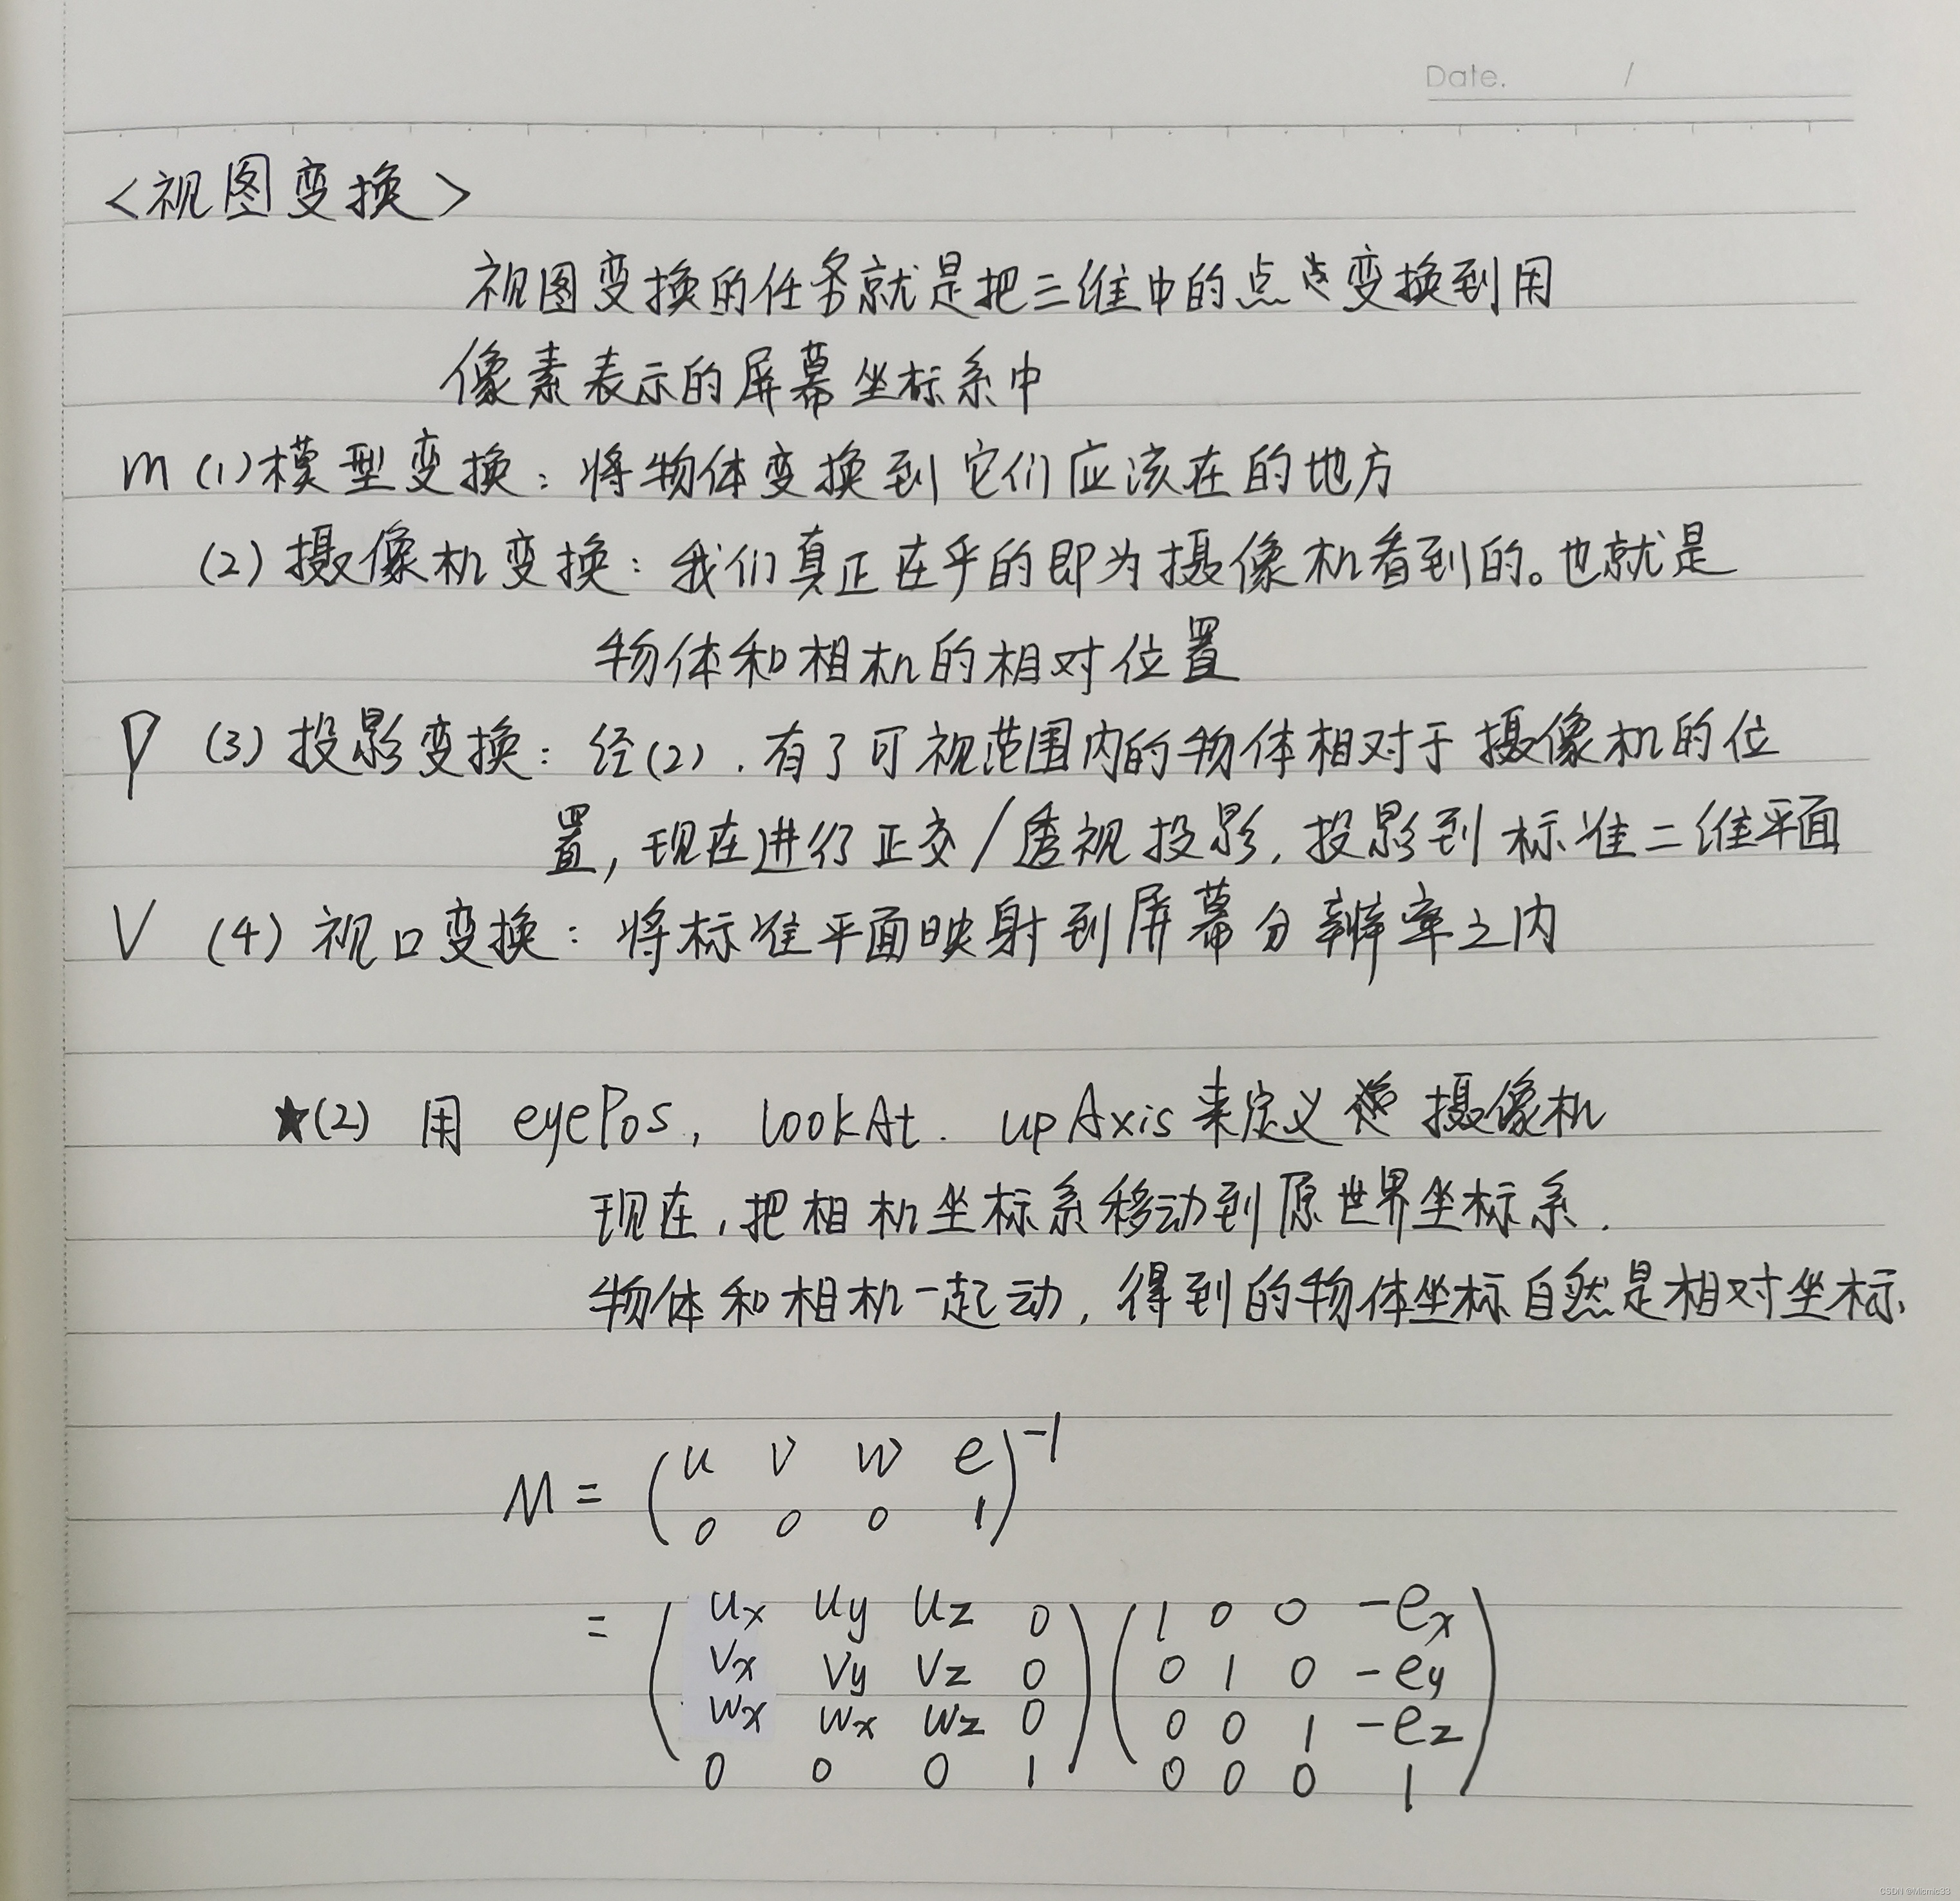 Date. /
<视图变换>
视图变换的任务就是把三维中的点变换到用
像素表示的屏幕坐标系中
m (1)模型变换：将物体变换到它们应该在的地方
(2)摄像机变换：我们真正在乎的即为摄像机看到的。也就是
物体和相机的相对位置
P (3)投影变换：经(2)，有了可视范围内的物体相对于摄像机的位
置，现在进行正交/透视投影，投影到标准二维平面
V (4)视口变换：将标准平面映射到屏幕分辨率之内
★(2) 用 eyePos, lookAt. upAxis来定义摄像机
现在，把相机坐标系移动到原世界坐标系.
物体和相机一起动，得到的物体坐标自然是相对坐标.
u v w e -1
M =
0 0 0 1
= ux uy uz 0 1 0 0 -ex
vx vy vz 0 0 1 0 -ey
wx wx wz 0 0 0 1 -ez
0 0 0 1 0 0 0 1
CSDN @Micmic33